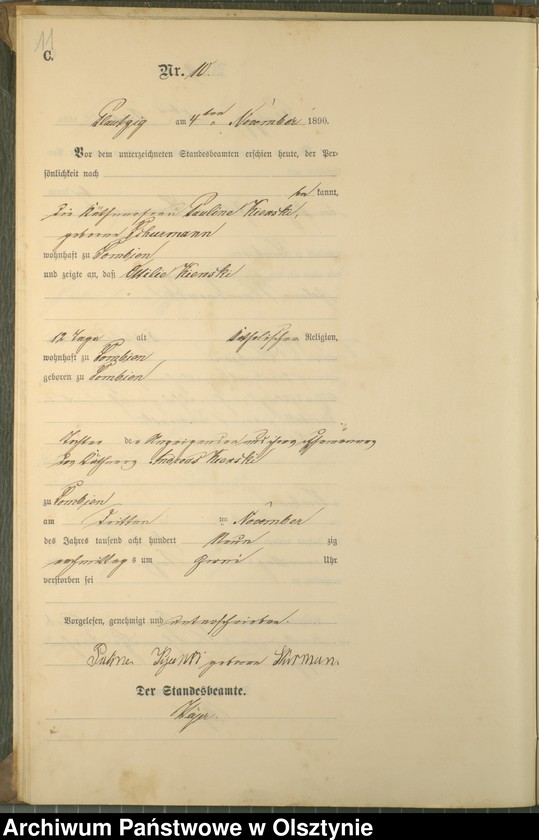 11
C.
Nr. 10.
Plautzig am 4ten November 1890.
Vor dem unterzeichneten Standesbeamten erschien heute, der Per-
sönlichkeit nach
be kannt,
die Käthnerfrau Pauline Kienski,
geborene Schurmann
wohnhaft zu Dombien
und zeigte an, daß Ottilie Kienski
12 Tage alt katholischer Religion,
wohnhaft zu Dombien
geboren zu Dombien
Tochter der Anzeigenden und ihres Ehemannes
des Käthners Andreas Kienski
zu Dombien
am dritten ten November
des Jahres tausend acht hundert Neun zig
nachmittag s um zwei Uhr
verstorben sei
Vorgelesen, genehmigt und unterschrieben.
geborene
Der Standesbeamte.
Archiwum Państwowe w Olsztynie